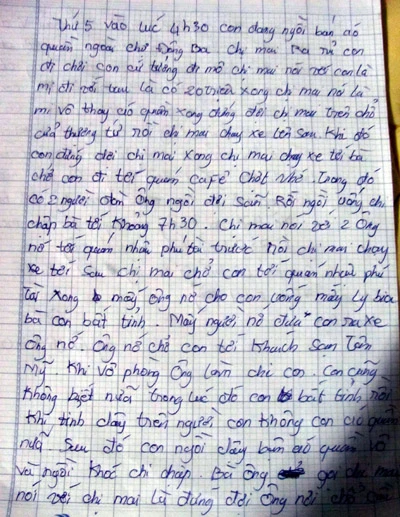 Thứ 5 vào lúc 4h30 con đang ngồi bán áo
quần ngoài chợ Đông Ba chị mai Ra rủ con
đi chơi con cứ tưởng đi mô chị mai nói với con là
mi đi với tau là có 20 triệu xong chị mai nói là
mi vô thay áo quần xong đứng đợi chị mai trên chổ
cửa thượng tứ rồi chị mai chạy xe lên sau khi đó
con đứng đợi chị mai xong chị mai chạy xe tới bà
chở con đi tới quán cafê Chót Nhớ. Trong đó
có 2 người đàn ông ngồi đợi sẵn Rồi ngồi uống chi
chập bà tới khoảng 7h30. Chị mai nói với 2 ông
nớ tới quán nhậu phú tài trước rồi chị mai chạy
xe tới sau chị mai chở con tới quán nhậu phú
tài xong mấy ông nớ cho con uống mấy ly bia
bà con bất tỉnh. Mấy người nớ đưa con ra xe
ông nớ. Ông nớ chở con tới khách sạn Tân
Mỹ. Khi vô phòng ông làm chi con. Con cũng
không biết nữa trong lúc đó con bất tỉnh rồi
khi tỉnh dậy trên người con không còn áo quần
nữa. Sau đó con ngồi dậy bận áo quần vô
và ngồi khóc chi chập. Bà ông gọi chị mai
nói với chị mai là đứng đợi ông nới chở